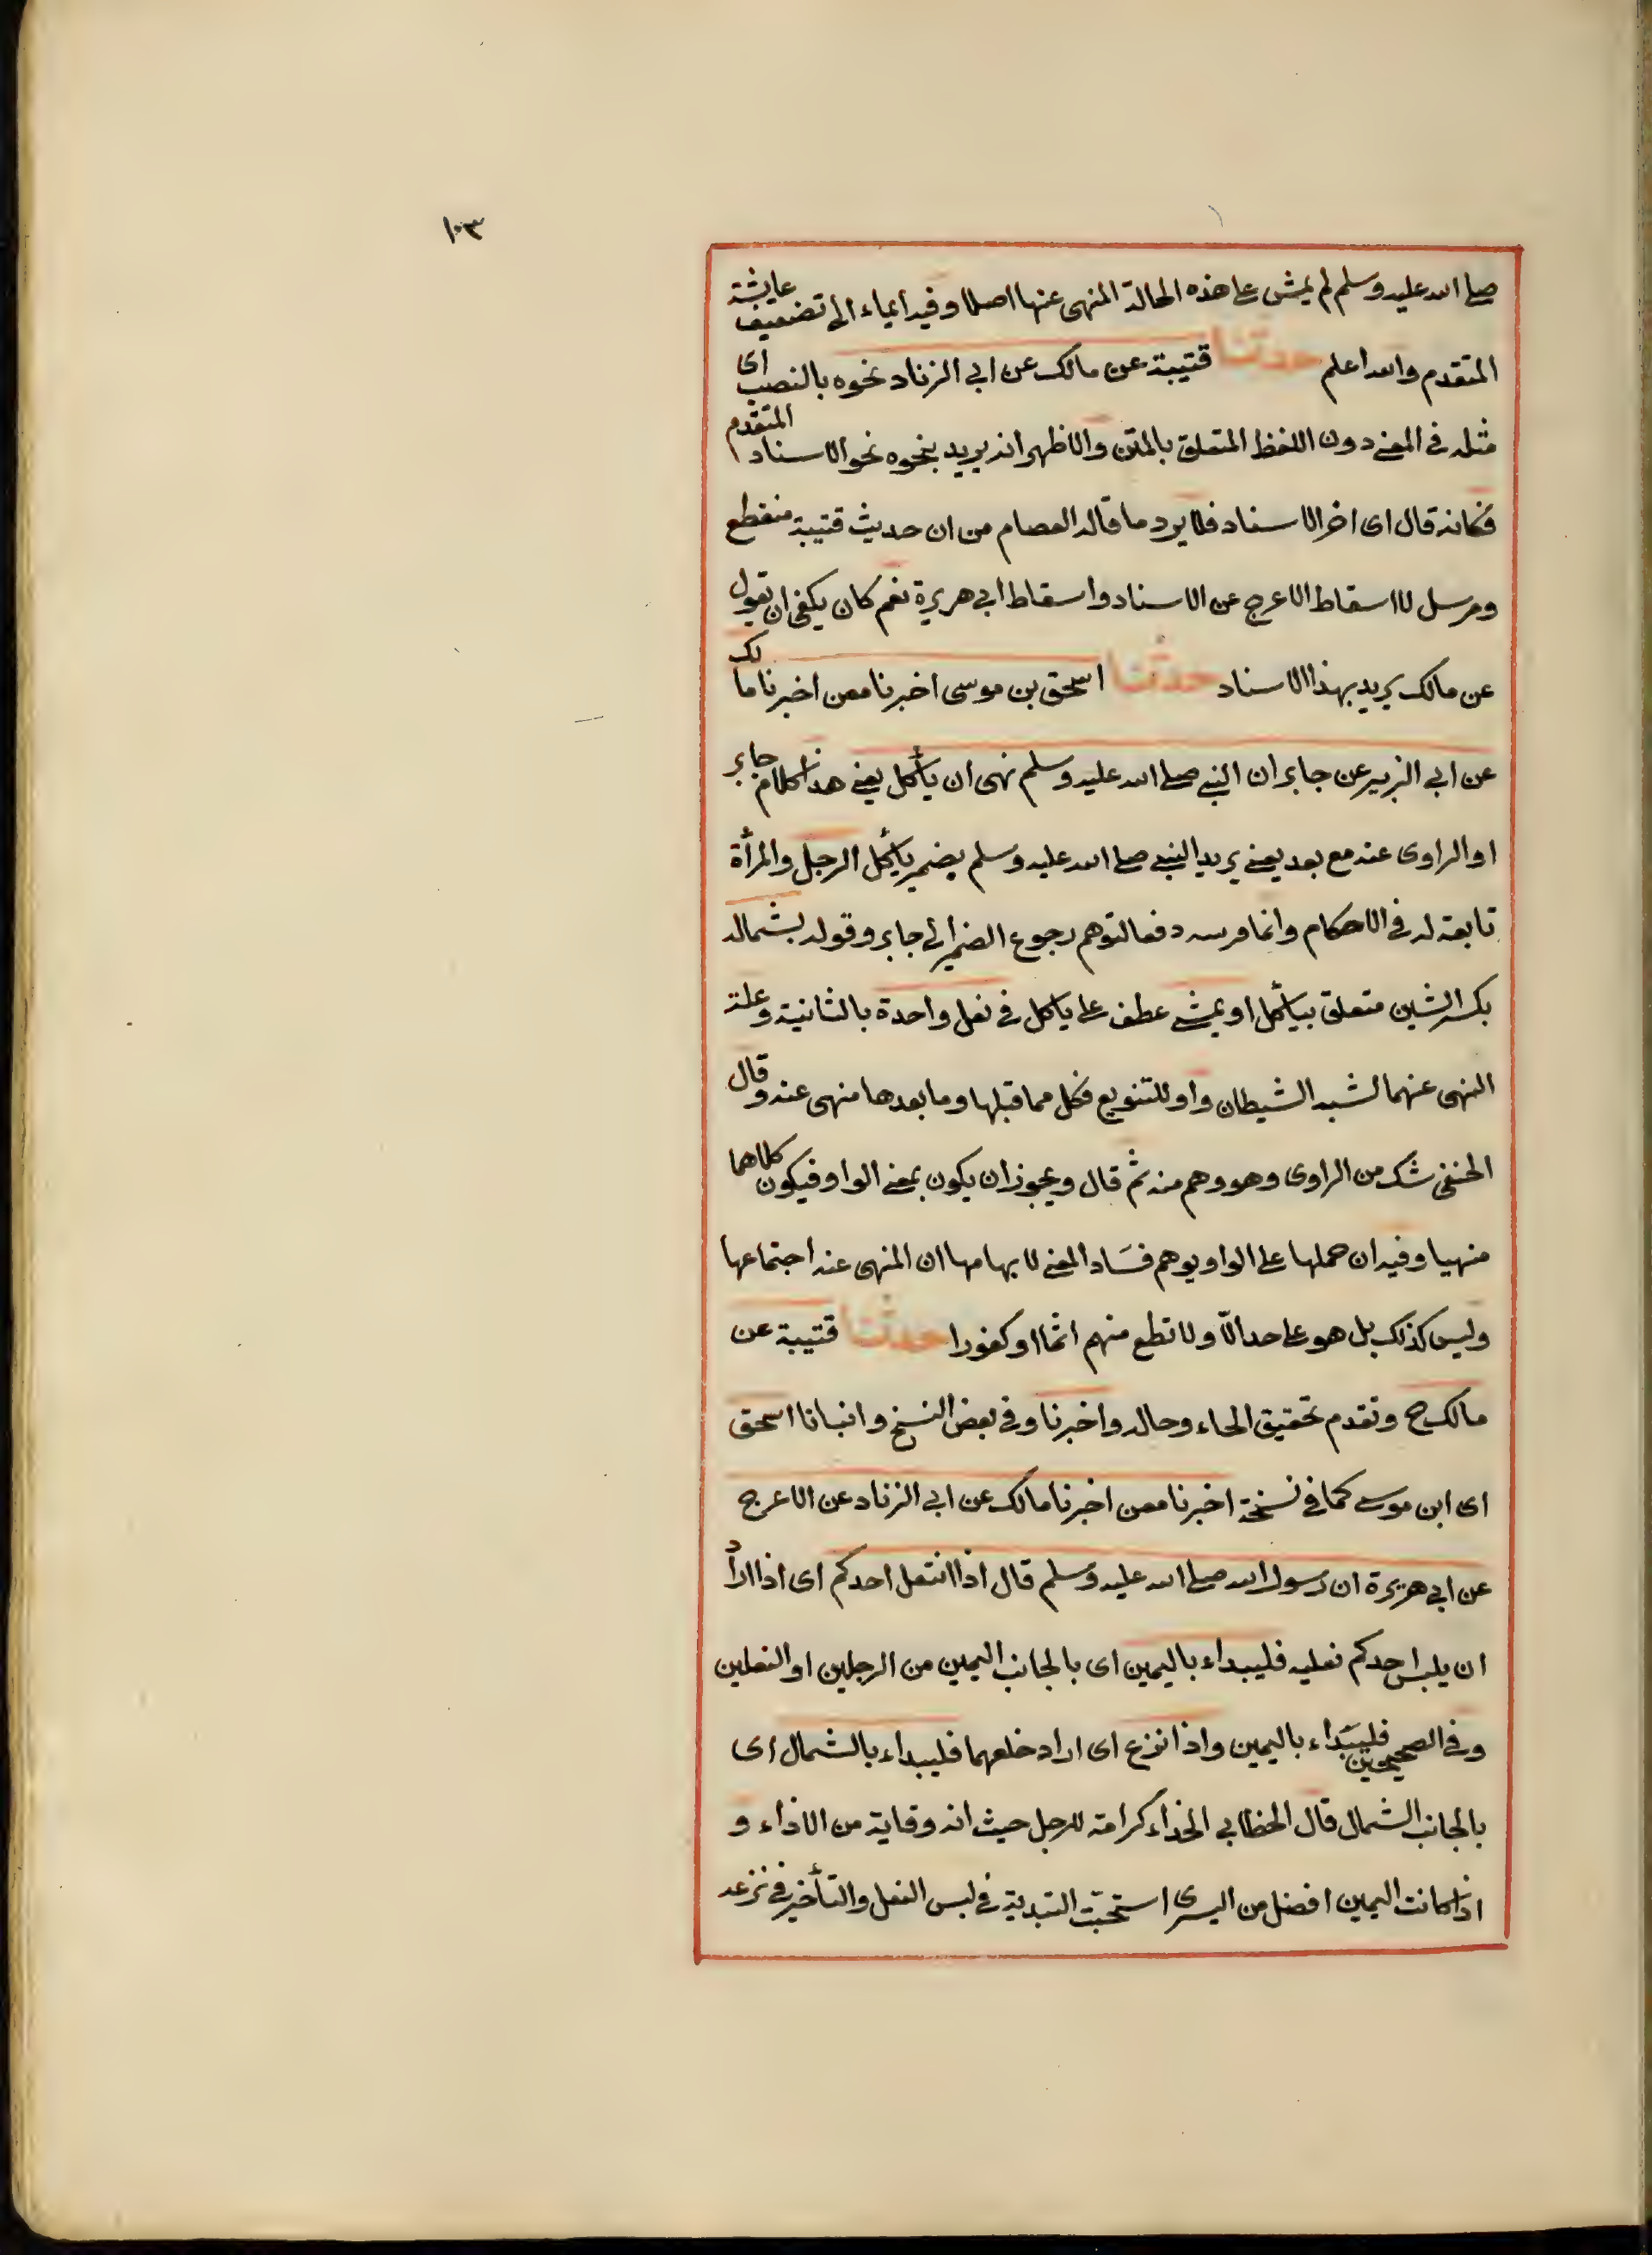 ١٠٣
صلى الله عليه وسلم لم يمش على هذه الحالة المنهى عنها اصلا وفيه ايماء الى تضعيف عايشة
المتقدم والله اعلم حدثنا قتيبة عن مالك عن ابي الزناد نحوه بالنصب اى
مثله في المعنى دون اللفظ المتعلق بالمتن والاظهر انه يريد بنحوه نحو الاسناد المتقدم
فكانه قال اى اخر الاسناد فلا يرد ما قاله العصام من ان حديث قتيبة منقطع
ومرسل لاسقاط الاعرج عن الاسناد واسقاط ابي هريرة نعم كان يكفى ان يقول
عن مالك يريد بهذا الاسناد حدثنا اسحق بن موسى اخبرنا معن اخبرنا مالك
عن ابي الزبير عن جابر ان النبي صلى الله عليه وسلم نهى ان يأكل يعني هذا كلام جابر
او الراوى عنه مع بعد يعني يريد النبي صلى الله عليه وسلم بضمير يأكل الرجل والمرأة
تابعة له في الاحكام وانما فسره دفعا لتوهم رجوع الضمير الى جابر وقوله بشماله
بكسر الشين متعلق بيأكل او يمشي عطف على ياكل في نعل واحدة بالثانية وعلة
النهى عنهما لشبه الشيطان واو للتنويع فكل مما قبلها وما بعدها منهى عنه وقال
الحنفى شك من الراوى وهو وهم منه ثم قال ويجوز ان يكون بمعنى الواو فيكون كلاهما
منهيا وفيه ان حملها على الواو يوهم فساد المعنى لابهامها ان المنهى عنه اجتماعها
وليس كذلك بل هو على حد الا ولا تطع منهم اثما او كفورا حدثنا قتيبة عن
مالك ح وتقدم تحقيق الحاء وحاله واخبرنا وفي بعض النسخ وانبانا اسحق
اى ابن موسى كما في نسخة اخبرنا معن اخبرنا مالك عن ابي الزناد عن الاعرج
عن ابي هريرة ان رسول الله صلى الله عليه وسلم قال اذا انتعل احدكم اى اذا اراد
ان يلبس احدكم نعليه فليبداء باليمين اى بالجانب اليمين من الرجلين او النعلين
وفي الصحيحين فليبداء باليمين واذا نزع اى اراد خلعهما فليبداء بالشمال اى
بالجانب الشمال قال الخطابي الحذاء كرامة للرجل حيث انه وقاية من الاذاء و
اذا كانت اليمين افضل من اليسرى استحبت التبدية في لبس النعل والتأخير في نزعه